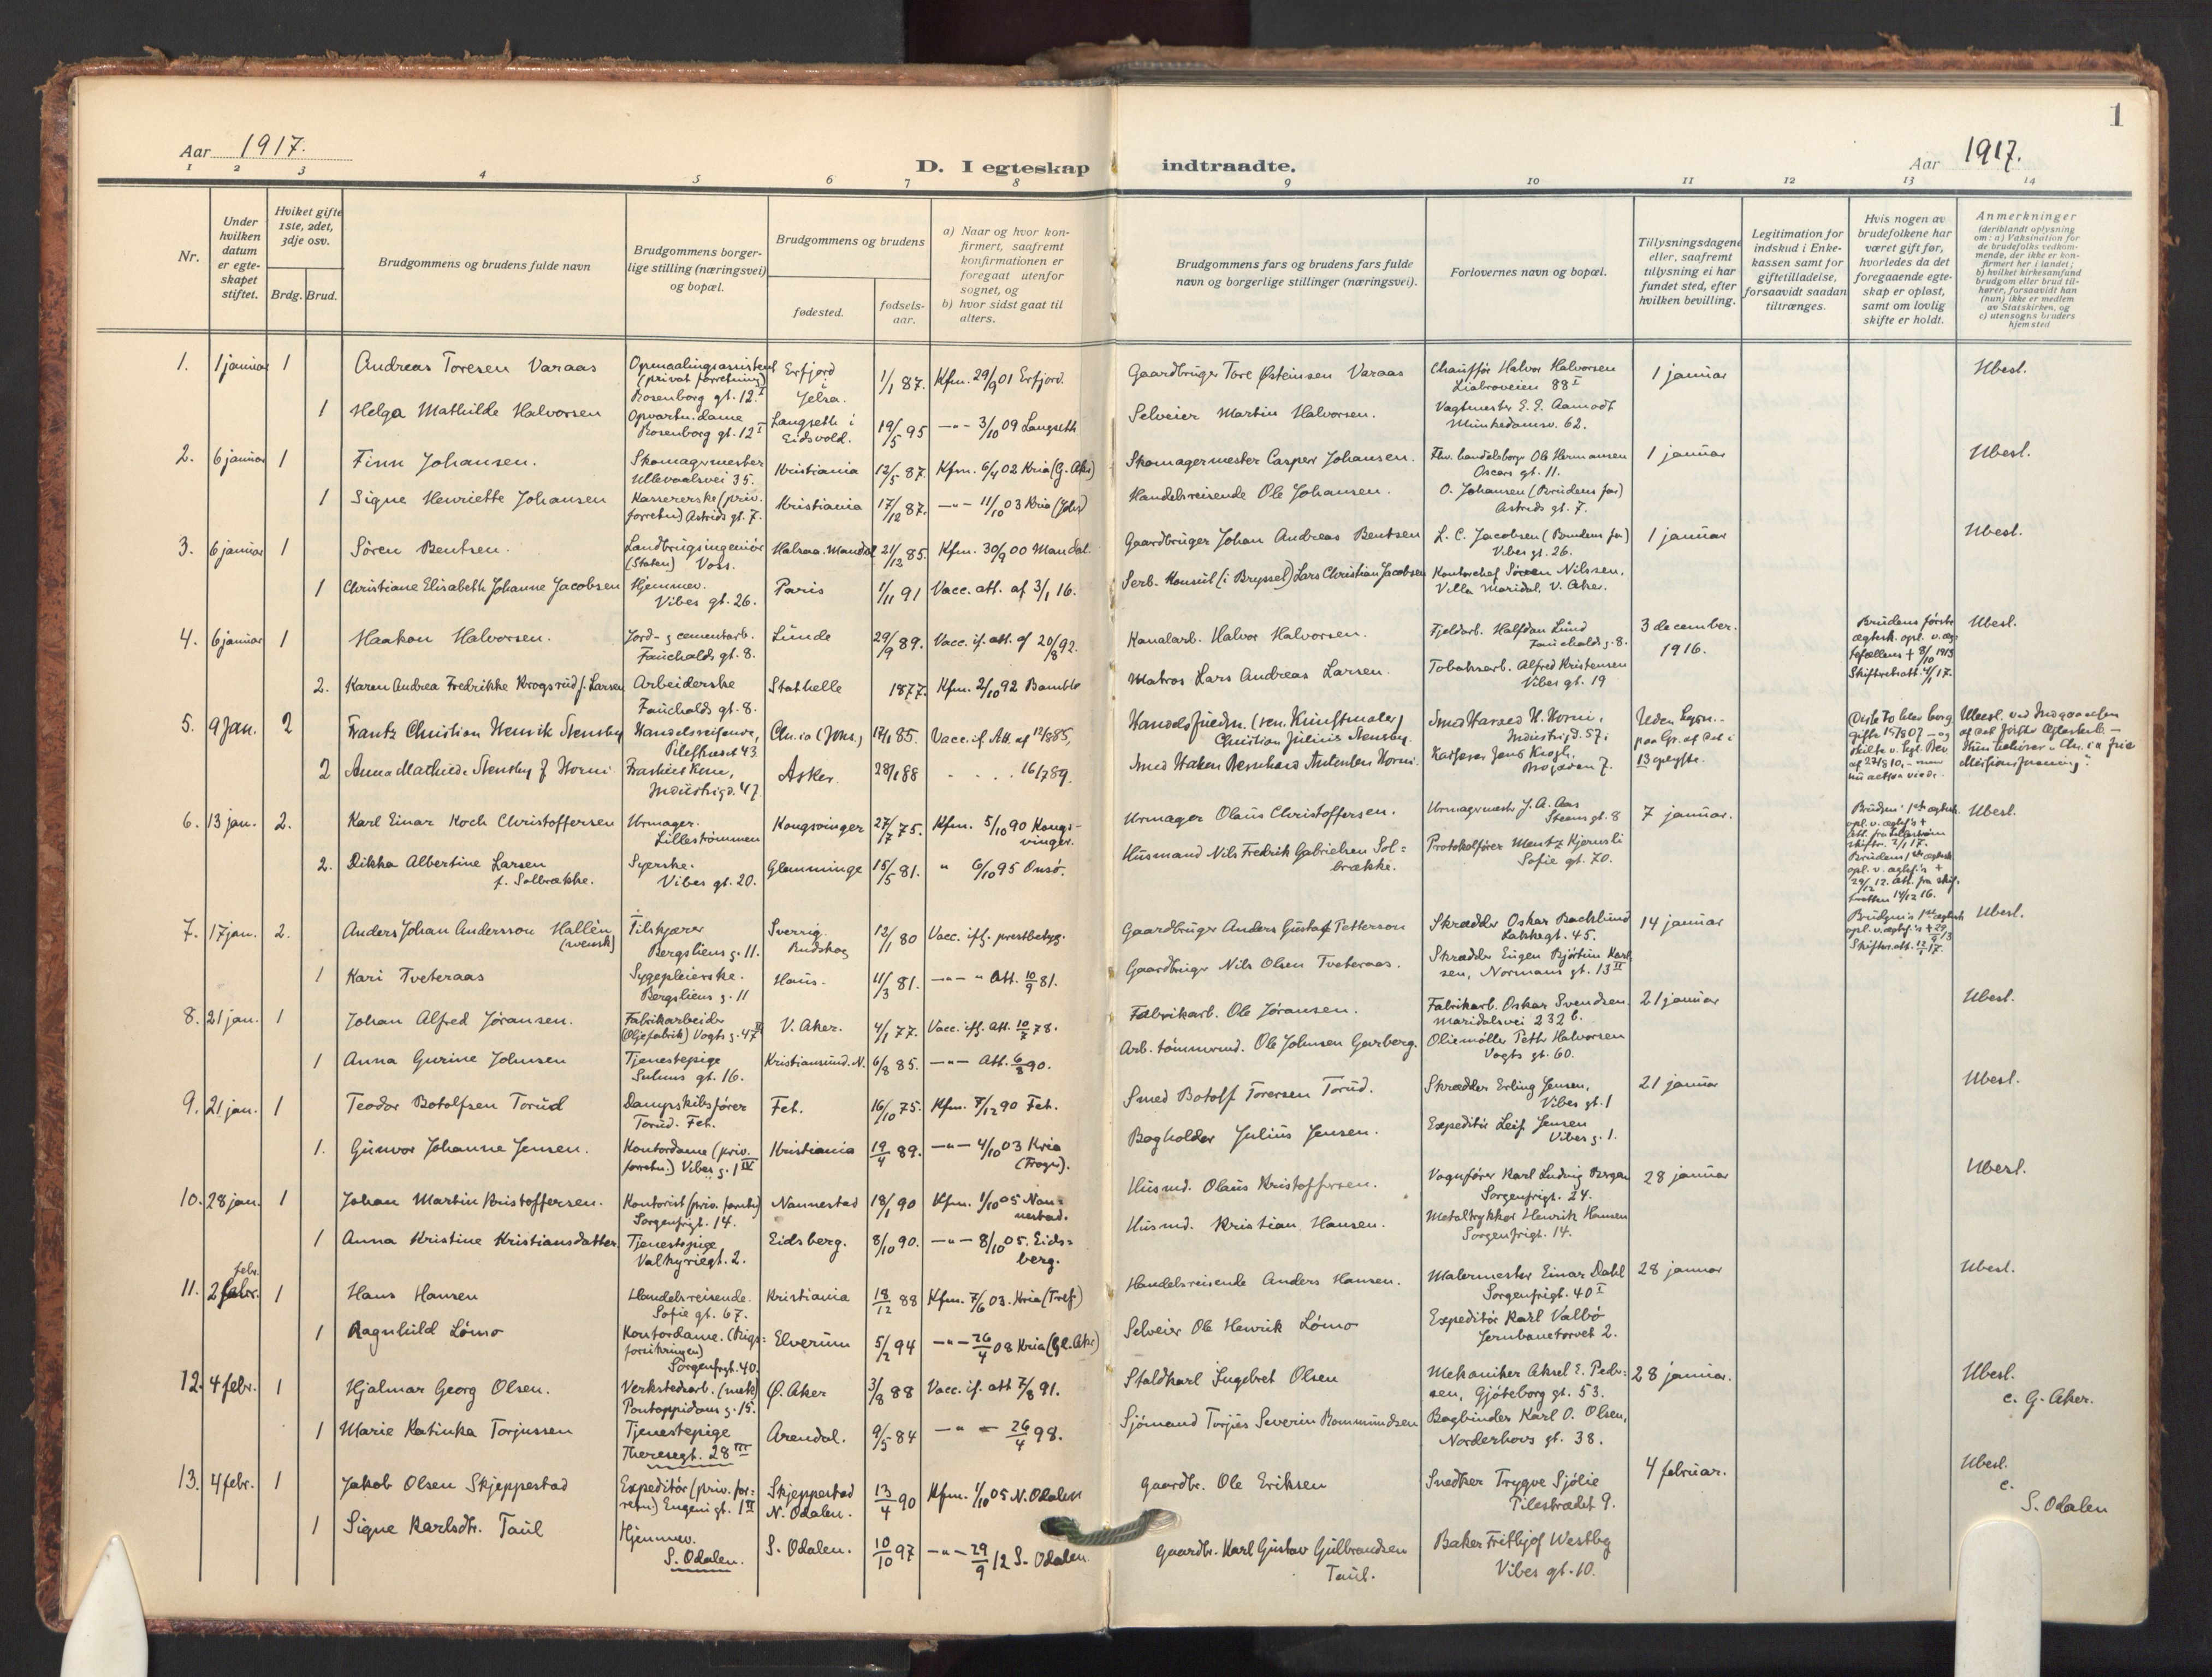 1
Aar 1917.
D. I egteskap indtraadte.
Aar 1917.
1 2 3 4 5 6 7 8 9 10 11 12 13 14
Nr.
Under hvilken datum er egte-skapet stiftet.
Hviket gifte 1ste, 2det, 3dje osv.
Brdg. Brud.
Brudgommens og brudens fulde navn
Brudgommens borger-lige stilling (næringsvei) og bopæl.
Brudgommens og brudens
fødested.
fødsels-aar.
a) Naar og hvor kon-firmert, saafremt konfirmationen er foregaat utenfor sognet, og
b) hvor sidst gaat til alters.
Brudgommens fars og brudens fars fulde navn og borgerlige stillinger (næringsvei).
Forlovernes navn og bopæl.
Tillysningsdagene eller, saafremt tillysning ei har fundet sted, efter hvilken bevilling.
Legitimation for indskud i Enke-kassen samt for giftetilladelse, forsaavidt saadan tiltrænges.
Hvis nogen av brudefolkene har været gift før, hvorledes da det foregaaende egte-skap er opløst, samt om lovlig skifte er holdt.
Anmerkninger (deriblandt oplysning om: a) Vaksination for de brudefolks vedkom-mende, der ikke er kon-firmert her i landet; b) hvilket kirkesamfund brudgom eller brud til-hører, forsaavidt han (hun) ikke er medlem av Statskirken, og c) utensogns bruders hjemsted
1. 1 januar 1 Andreas Toresen Varaas Opmaalingsassistent (privat forretning) Rosenborg gt. 12 I Erfjord i Jelsa. 1/1 87. Kfm. 29/9 01 Erfjord. Gaardbruger Tore Østeinsen Varaas Chauffør Halvor Halvorsen Liabroveien 88 I 1 januar Ubesl.
1 Helga Mathilde Halvorsen Opvartn.dame Rosenborg gt. 12 I Langseth i Eidsvold. 19/5 95 —"— 3/10 09 Langseth Selveier Martin Halvorsen. Vagtmester E. E. Aamodt Munkedamsv. 62.
2. 6 januar 1 Finn Johansen. Skomagermester Ullevaalsvei 35. Kristiania 12/5 87. Kfm. 6/4 02 Kria (G. Aker) Skomagermester Casper Johansen. Fhv. handelsborger Ole Hermansen Oscars gt. 11. 1 januar Ubesl.
1 Signe Henriette Johansen Kassererske (priv. forretn) Astrids gt. 7. Kristiania 17/12 87. —"— 11/10 03 Kria (Johs) Handelsreisende Ole Johansen. O. Johansen (Brudens far) Astrids gt. 7.
3. 6 januar 1 Sören Bentsen. Landbrugsingeniör (Staten) Voss. Halsaa. Mandal 21/12 85. Kfm. 30/9 00 Mandal. Gaardbruger Johan Andreas Bentsen L. C. Jacobsen (Brudens far) Vibes gt. 26. 1 januar Ubesl.
1 Christiane Elisabeth Johanne Jacobsen Hjemmev. Vibes gt. 26. Paris 1/11 91 Vacc. att. af 3/1 16. Serb. Konsul (i Bryssel) Lars Christian Jacobsen Kontorchef Sören Nilssen, Villa Maridal, V. Aker.
4. 6 januar 1 Haakon Halvorsen. Jord- & cementarb. Fauchalds gt. 8. Lunde 29/9 89. Vacc. if. att. af 20/8 92. Kanalarb. Halvor Halvorsen. Fjeldarb. Halfdan Lund Fauchalds g. 8. 3 december. 1916. Brudens förste ægtesk. opl. v. æg-tefællens + 8/10 1913 Skifteretsatt. 4/1 17. Ubesl.
2. Karen Andrea Fredrikke Krogsrud f. Larsen Arbeiderske Fauchalds gt. 8. Stathelle 1877. Kfm. 2/10 92 Bamble Matros Lars Andreas Larsen. Tobaksarb. Alfred Kristensen Vibes gt. 19
5. 9 Jan. 2 Frantz Christian Henrik Stensby Handelsreisende, Pilestrædet 43 Chr.ia (Johs.) 17/1 85. Vacc. if. Att. af 12/8 85, Christian Julius Stensby. Smed Harald H. Horni, Industrigd. 57. 13 Ubesl.
2 Anna Mathilde Stensby f Horni Industrigd. 47 Asker. 28/1 88 16/7 89. Smed Haken Bernhard Antonsen Horni. Kasserer Jens Krogh,
6. 13 jan. 2. Karl Einar Koch Christoffersen Urmager. Lillestrømmen Kongsvinger 27/7 75. Kfm. 5/10 90 Kongs-vinger. Urmager Olaus Christoffersen. Urmagermestr J. A. Aas Steens gt. 8 7 januar. Ubesl.
2. Dikka Albertine Larsen f. Solbrække. Syerske. Vibes gt. 20. Glemminge 15/5 81. " 6/10 95 Onsö. Husmand Nils Fredrik Gabrielsen Sol=brække. Protokolfører Mentz Kjernsli Sofie gt. 70.
7. 17 jan. 2. Anders Johan Andersson Hallén (svensk) Tilskjærer Bergsliens g. 11. Sverrig. Rudskog 12/1 80 Vacc. iflg. prestbetyg. Gaardbruger Anders Gustaf Petterson Skrædder Oskar Backlund 45. 14 januar Ubesl.
1 Kari Tveteraas Sygepleierske. Bergsliens g. 11 Haus. 11/3 81. —"— " Att. 10/9 81. Gaardbruger Nils Olsen Tveteraas. Skrædder Eugen Björtun Karl-sen, Normans gt. 13 II
8. 21 jan. 1 Johan Alfred Jöransen. Fabrikarbeider (Oljefabrik) Vogts g. 47 II V. Aker. 4/1 77. Vacc. iflg. att. 10/7 78. Fabrikarb. Ole Jöransen. Fabrikarb. Oskar Svendsen. Maridalsvei 232 b. 21 januar Ubesl.
1 Anna Gurine Johnsen Tjenestepige Suhms gt. 16. Kristiansund. N. 6/8 85. —"— Att. 6/8 90. Arb. tömmermd. Ole Johnsen Garberg. Oliemöller Petter Halvorsen Vogts gt. 60.
9. 21 jan. 1 Teodor Botolfsen Torud Dampskibsfører Torud. Fet. Fet. 16/10 75. Kfm. 7/12 90 Fet. Smed Botolf Torersen Torud. Skrædder Erling Jensen, Vibes gt. 1 21 januar Ubesl.
1. Gunvor Johanne Jensen. Kontordame (priv. forretn.) Vibes g. 1 IV Kristiania 19/4 89. —"— 4/10 03 Kria (Frogn). Bogholder Julius Jensen. Expeditör Leif Jensen Vibes g. 1.
10. 28 jan. 1 Johan Martin Kristoffersen. Kontorist (priv. forretn) Sorgenfrigt. 14. Nannestad 18/1 90 Kfm. 1/10 05 Nan=nestad. Husmd. Olaus Kristoffersen. Vognfører Karl Ludvig Bergan Sorgenfrigt. 24. 28 januar Ubesl.
1 Anna Kristine Kristiansdatter. Tjenestepige Valkyriegt. 2. Eidsberg. 8/10 90. —"— 8/10 05. Eids=berg. Husmd. Kristian Hansen. Metaltrykker Henrik Hansen Sorgenfrigt. 14.
11. 2 febr. 1 Hans Hansen Handelsreisende. Sofie gt. 67. Kristiania 18/12 88 Kfm. 7/6 03. Kria (Tref.) Handelsreisende Anders Hansen. Malermester Einar Dahl Sorgenfrigt. 40 I 28 januar Ubesl.
1 Ragnhild Lömo Kontordame. (Rigs=forsikringen) Sorgenfrigt. 40. Elverum 5/2 94 —"— 26/4 08 Kria (Gl. Aker) Selveier Ole Henrik Lömo Expeditör Karl Valbö Jernbanetorvet 2.
12. 4 febr. 1 Hjalmar Georg Olsen. Verkstedsarb. (mek) Pontoppidans g. 15. Ø. Aker 3/8 88 Vacc. if. att 7/8 91. Staldkarl Ingebret Olsen Mekaniker Aksel E. Peder-sen, Gjöteborg gt. 53. 28 januar. Ubesl. c. G. Aker.
1 Marie Katinka Torjussen Tjenestepige Theresegt. 28 III Arendal. 9/5 84 —"— 26/4 98. Sjömand Torjus Severin Rommundsen Bogbinder Karl O. Olsen, Norderhovs gt. 38.
13. 4 febr. 1 Jakob Olsen Skjeppestad Expeditör (priv. for-retn.) Eugeni gt. 1 II Skjeppestad N. Odalen. 13/4 90 Kfm. 1/10 05 N. Odalen Gaardbr. Ole Eriksen Snedker Trygve Sjölie Pilestrædet 9. 4 februar. Ubesl. c. S. Odalen
1 Signe Karlsdtr. Taul Hjemmev. S. Odalen. S. Odalen. 10/10 97 —"— 29/9 12 S. Odalen. Gaardbr. Karl Gustav Gulbrandsen Taul. Baker Frithjof Westbg Vibes gt. 10.